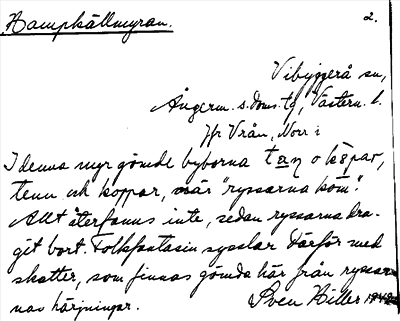 Hampkällmyran. 2.
Vibyggerå sn,
Ångerm. s. doms. tg, Västern. l.
Hr Vrån, Norr i
I denna myr gömde byborna tạṇ o kọ̈par,
tenn och koppar, när "ryssarna kom".
Allt återfanns inte, sedan ryssarna dra-
git bort. Folkfantasin sysslar därför med
skatter, som finnas gömda här från ryssar-
nas härjningar. Sven Hiller 1942